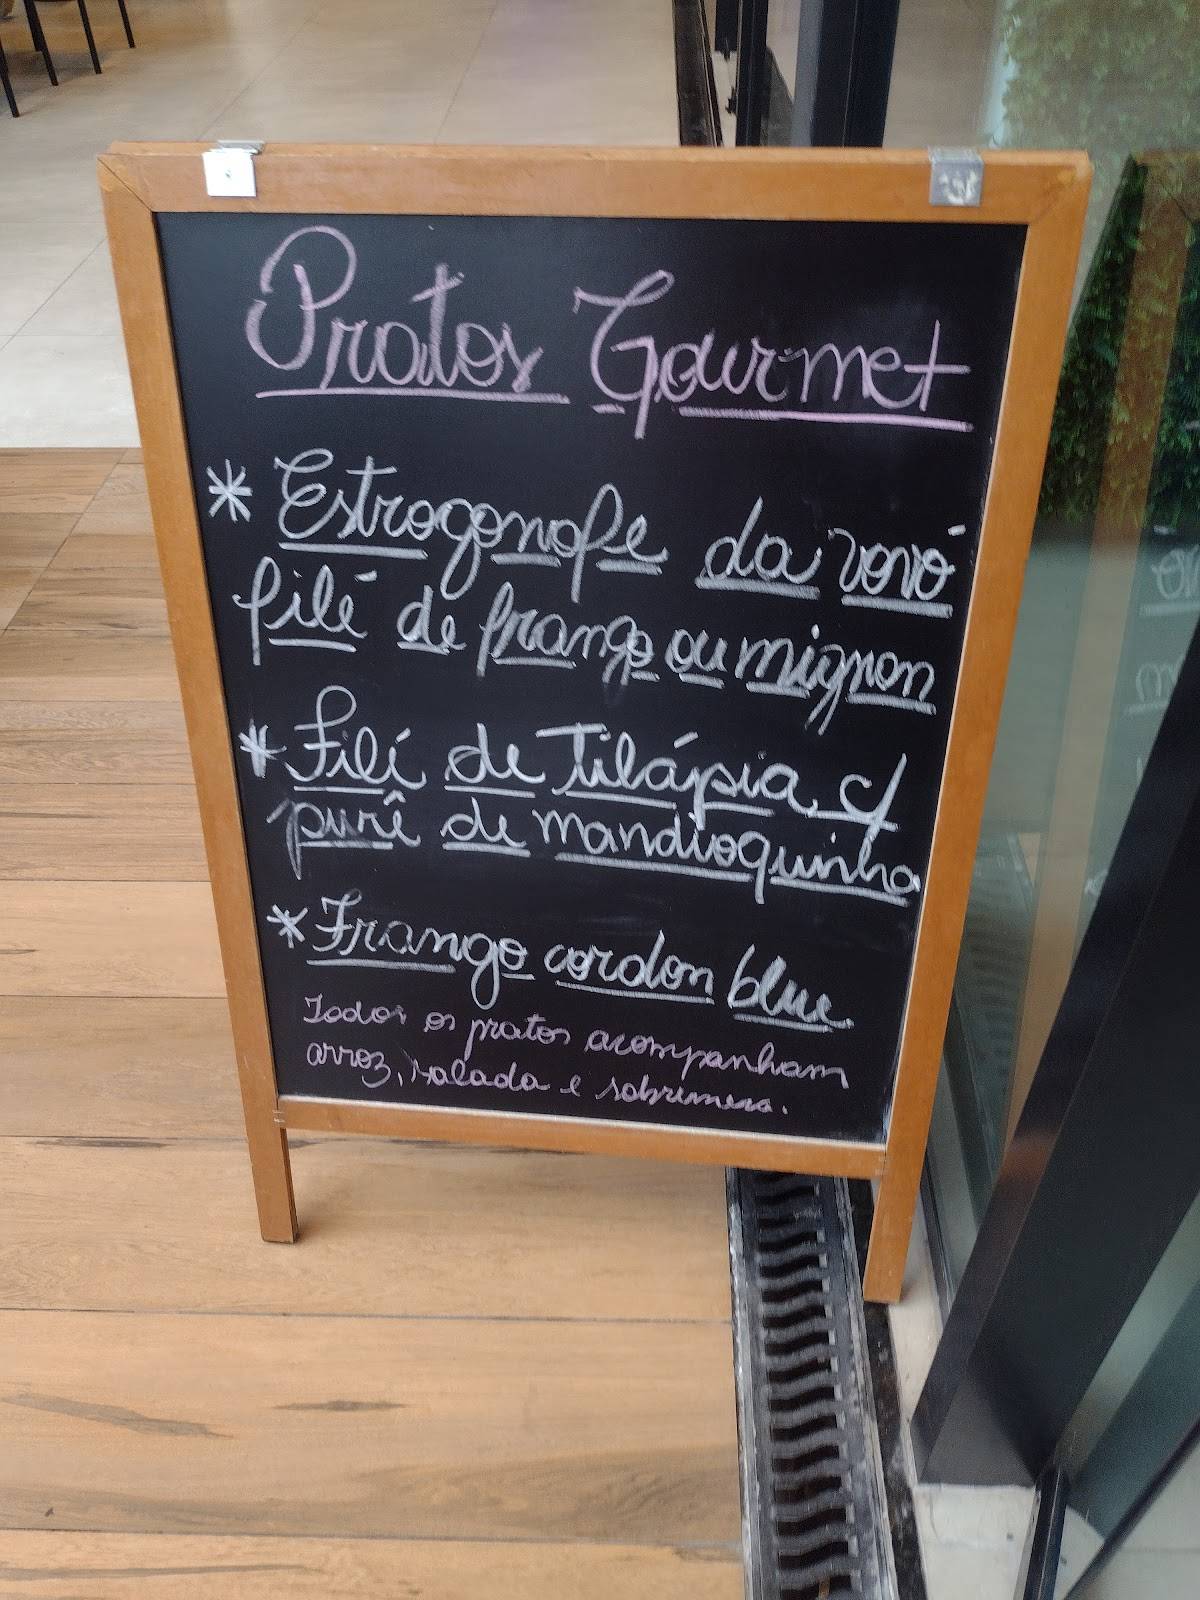 Pratos Gourmet
* Estrogonofe da vovó
filé de frango ou mignon
* Filé de Tilápia c/
purê de mandioquinha
* Frango cordon blue
Todos os pratos acompanham
arroz, salada e sobremesa.